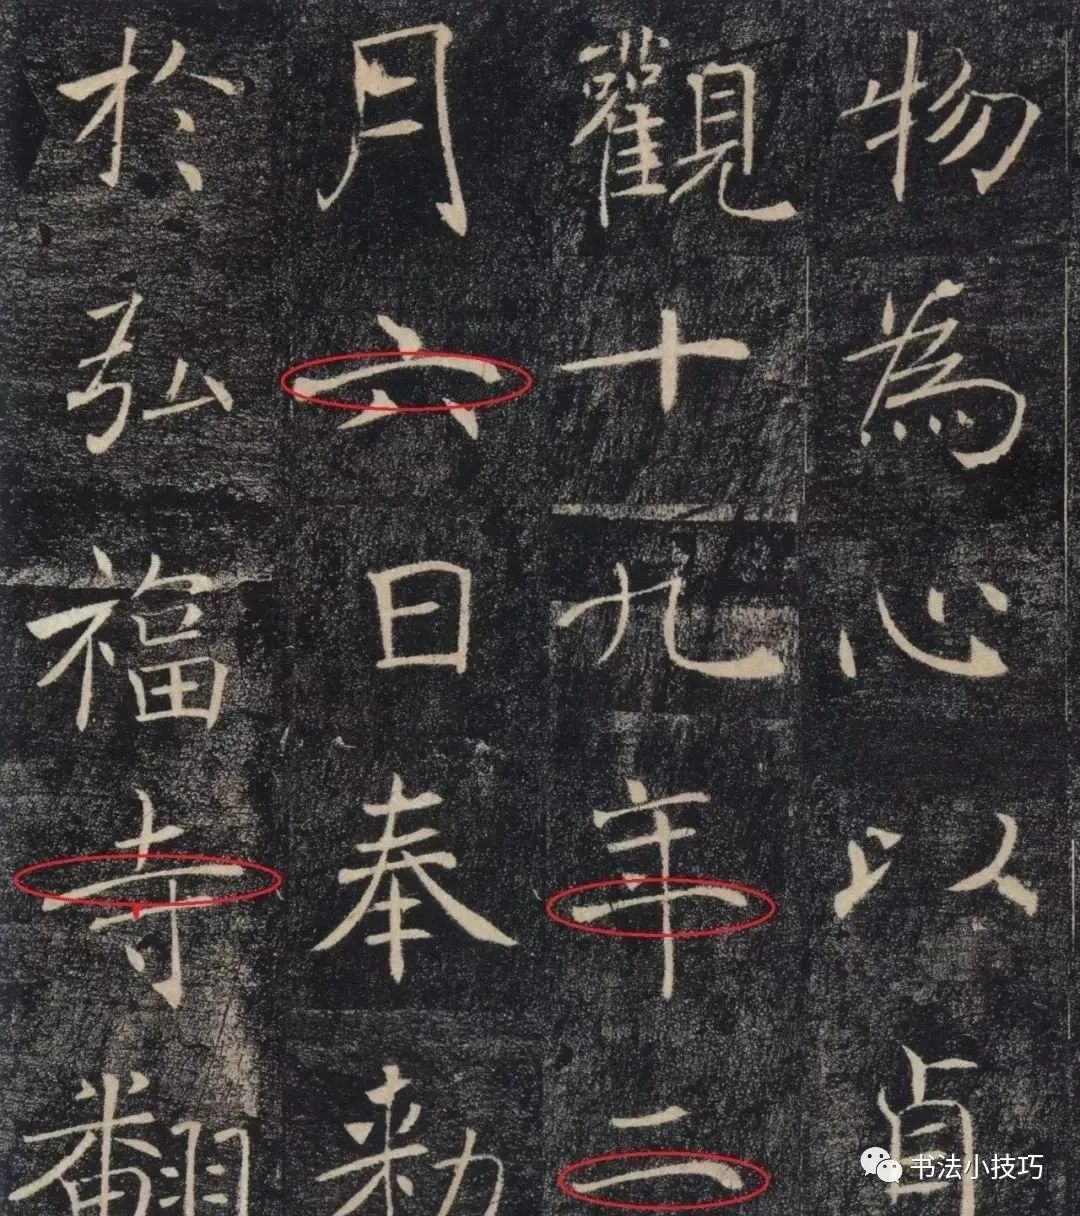 物為心以貞
觀十九年二
月六日奉勅
於弘福寺翻
书法小技巧